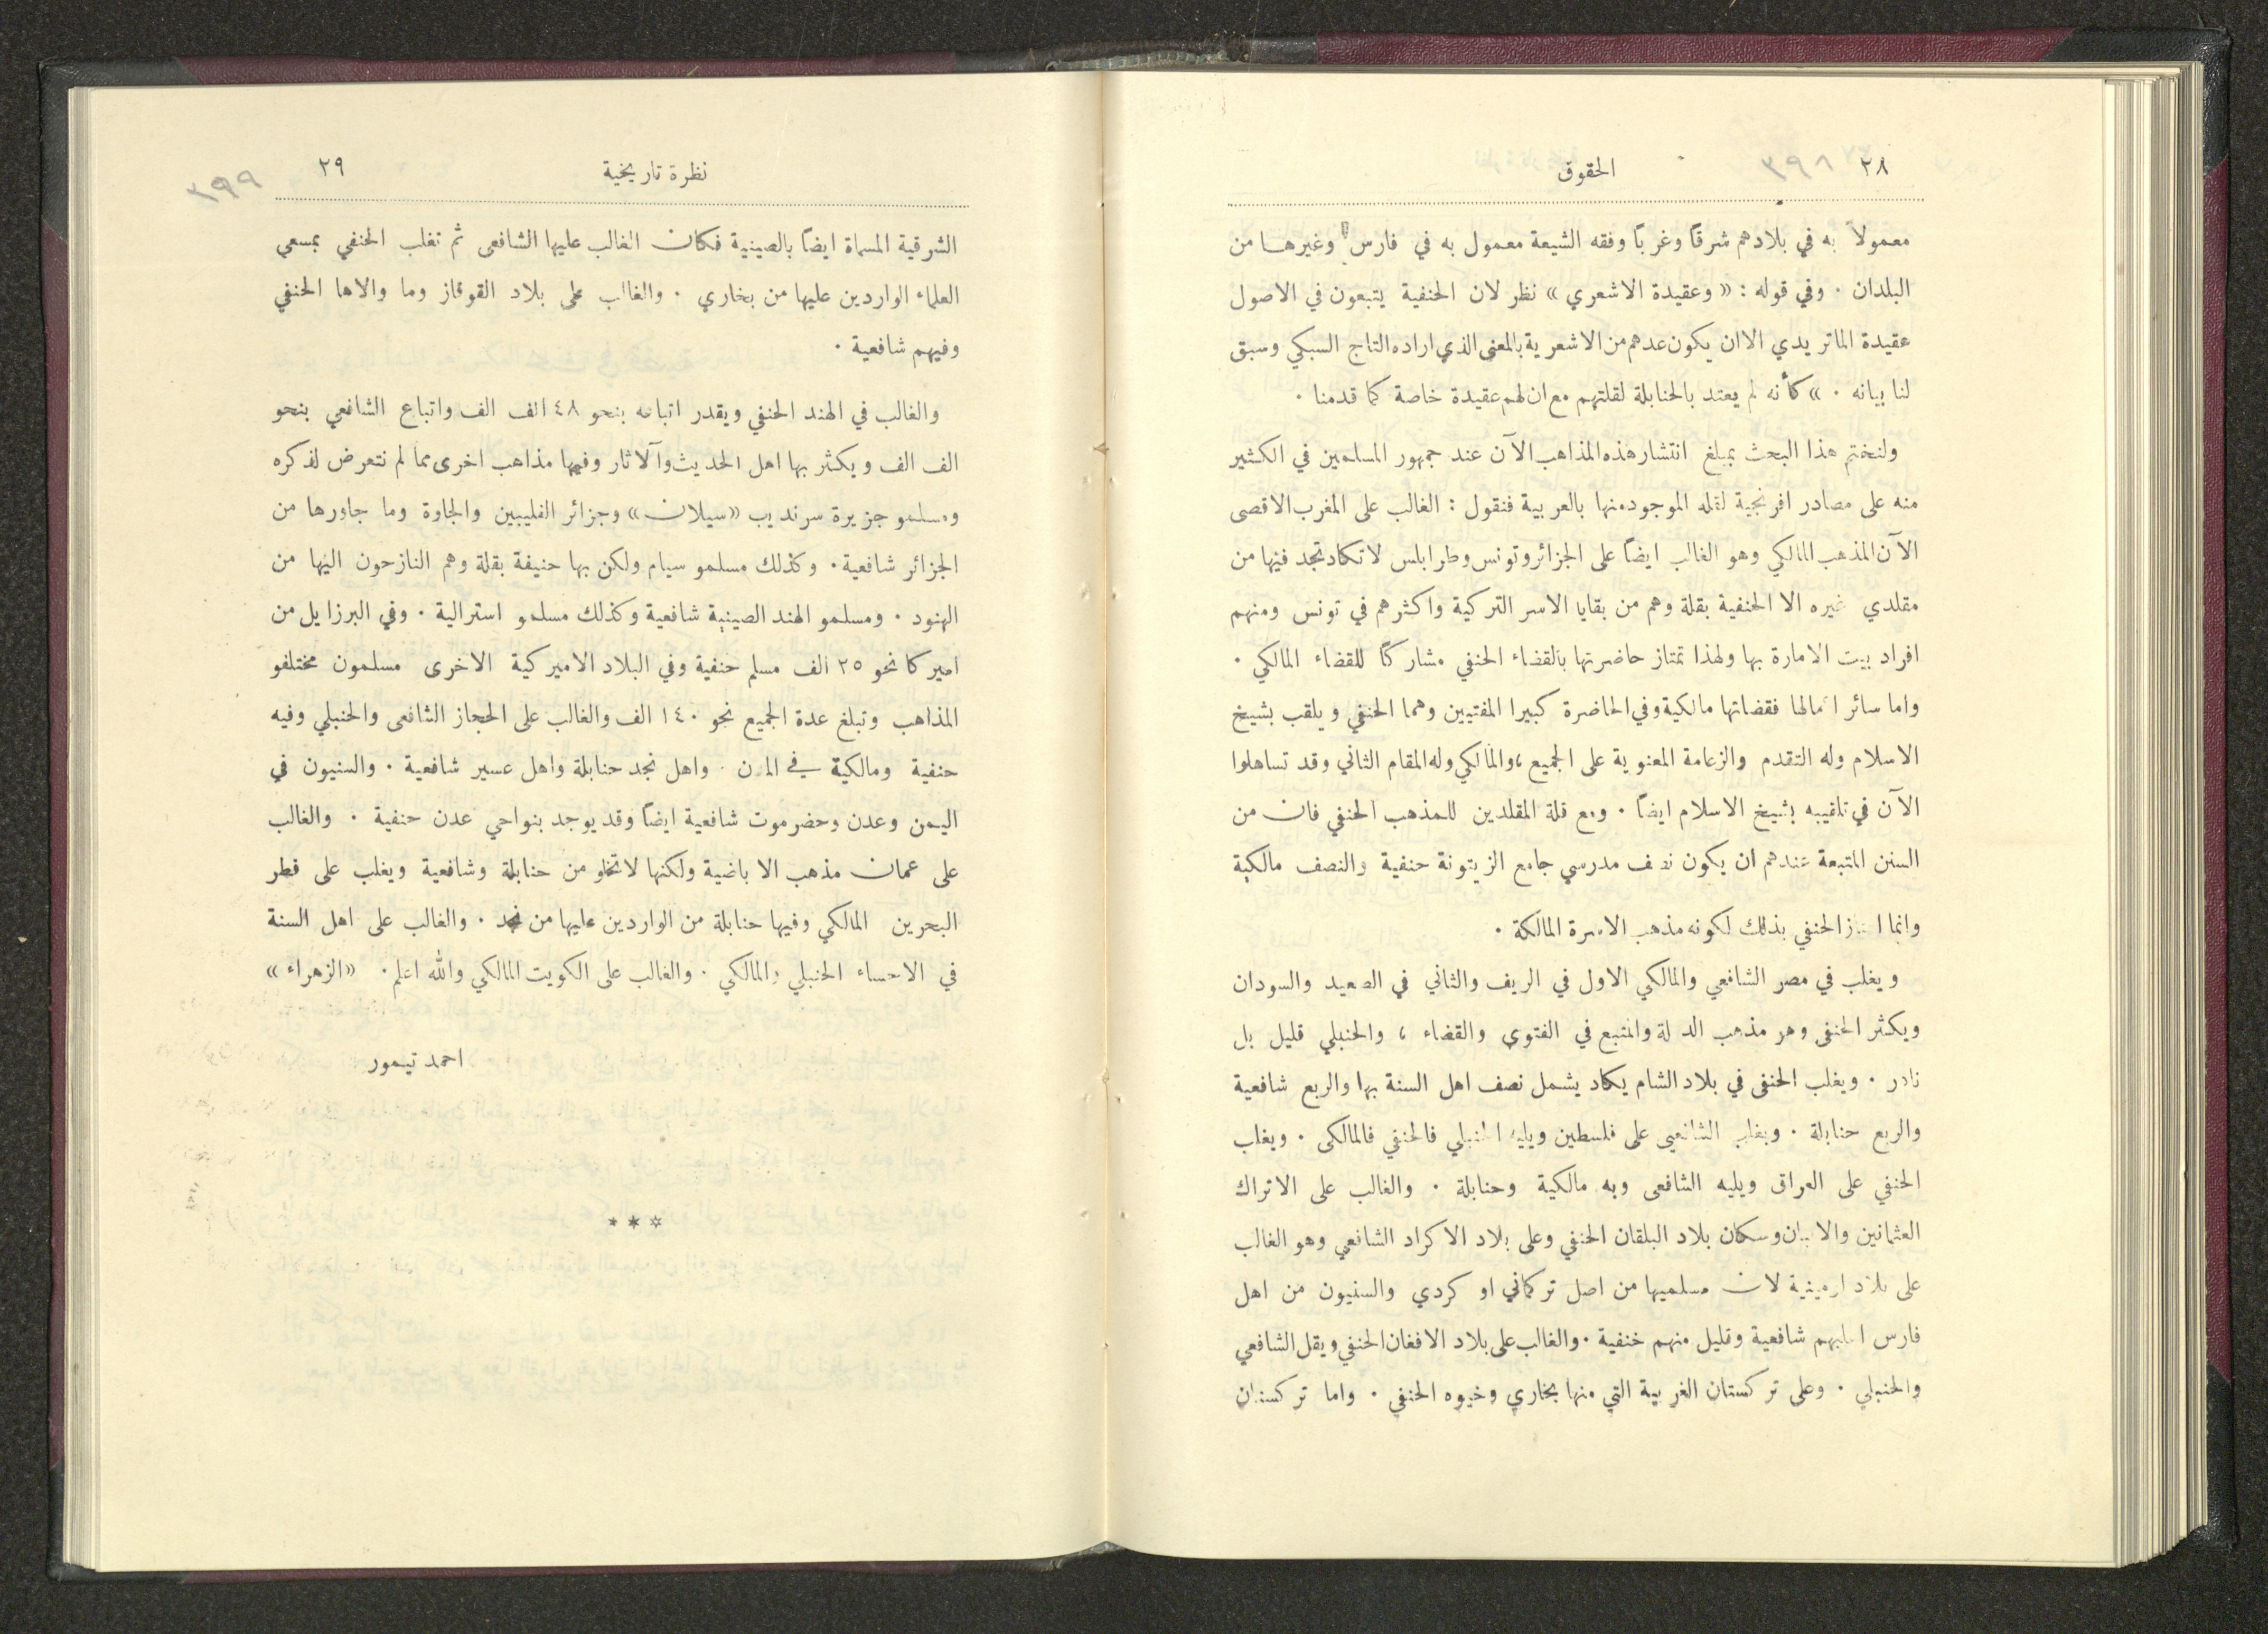 ٢٨
٣٩٨
الحقوق
معمولاً به في بلادهم شرقاً وغرباً وفقه الشيعة معمول به في فارس وغيرها من
البلدان . وفي قوله : « وعقيدة الاشعري » نظر لان الحنفية يتبعون في الاصول
عقيدة الماتريدي الا ان يكون عدهم من الاشعرية بالمعنى الذي اراده التاج السبكي وسبق
لنا بيانه . » كأنه لم يعتد بالحنابلة لقلتهم مع ان لهم عقيدة خاصة كما قدمنا .
ولنختم هذا البحث بمبلغ انتشار هذه المذاهب الآن عند جمهور المسلمين في الكثير
منه على مصادر افرنجية لقلة الموجود منها بالعربية فنقول : الغالب على المغرب الاقصى
الآن المذهب المالكي وهو الغالب ايضاً على الجزائر وتونس وطرابلس لا تكاد تجد فيها من
مقلدي غيره الا الحنفية بقلة وهم من بقايا الاسر التركية واكثرهم في تونس ومنهم
افراد بيت الامارة بها ولهذا تمتاز حاضرتها بالقضاء الحنفي مشاركاً للقضاء المالكي .
واما سائر اعمالها فقضاتها مالكية وفي الحاضرة كبيرا المفتيين وهما الحنفي ويلقب بشيخ
الاسلام وله التقدم والزعامة المعنوية على الجميع ، والمالكي وله المقام الثاني وقد تساهلوا
الآن في تلقيبه بشيخ الاسلام ايضاً . ومع قلة المقلدين للمذهب الحنفي فان من
السنن المتبعة عندهم ان يكون نصف مدرسي جامع الزيتونة حنفية والنصف مالكية
وانما امتاز الحنفي بذلك لكونه مذهب الاسرة المالكة .
ويغلب في مصر الشافعي والمالكي الاول في الريف والثاني في الصعيد والسودان
ويكثر الحنفي وهو مذهب الدولة والمتبع في الفتوى والقضاء ، والحنبلي قليل بل
نادر . ويغلب الحنفي في بلاد الشام يكاد يشمل نصف اهل السنة بها والربع شافعية
والربع حنابلة . ويغلب الشافعي على فلسطين ويليه الحنبلي فالحنفي فالمالكي . ويغلب
الحنفي على العراق ويليه الشافعي وبه مالكية وحنابلة . والغالب على الاتراك
العثمانين والالبان وسكان بلاد البلقان الحنفي وعلى بلاد الاكراد الشافعي وهو الغالب
على بلاد ارمينية لان مسلميها من اصل تركماني او كردي والسنيون من اهل
فارس اغلبهم شافعية وقليل منهم خنفية . والغالب على بلاد الافغان الحنفي ويقل الشافعي
والحنبلي . وعلى تركستان الغربية التي منها بخاري وخيوه الحنفي . واما تركستان
نظرة تاريخية
٢٩
٣٩٩
الشرقية المسماة ايضاً بالصينية فكان الغالب عليها الشافعي ثم تغلب الحنفي بمسعى
العلماء الواردين عليها من بخاري . والغالب على بلاد القوقاز وما والاها الحنفي
وفيهم شافعية .
والغالب في الهند الحنفي ويقدر اتباعه بنحو ٤٨ الف الف واتباع الشافعي بنحو
الف الف ويكثر بها اهل الحديث والآثار وفيها مذاهب اخرى مما لم نتعرض لذكره
ومسلمو جزيرة سرنديب « سيلان » وجزائر الفليبين والجاوة وما جاورها من
الجزائر شافعية . وكذلك مسلمو سيام ولكن بها حنيفة بقلة وهم النازحون اليها من
الهنود . ومسلمو الهند الصينية شافعية وكذلك مسلمو استرالية . وفي البرزايل من
اميركا نحو ٢٥ الف مسلم حنفية وفي البلاد الاميركية الاخرى مسلمون مختلفو
المذاهب وتبلغ عدة الجميع نحو ١٤٠ الف والغالب على الحجاز الشافعي والحنبلي وفيه
حنفية ومالكية في المدن . واهل نجد حنابلة واهل عسير شافعية . والسنيون في
اليمن وعدن وحضرموت شافعية ايضاً وقد يوجد بنواحي عدن حنفية . والغالب
على عمان مذهب الاباضية ولكنها لا تخلو من حنابلة وشافعية ويغلب على قطر
البحرين المالكي وفيها حنابلة من الواردين عليها من نجد . والغالب على اهل السنة
في الاحساء الحنبلي والمالكي . والغالب على الكويت المالكي والله اعلم . « الزهراء »
احمد تيمور
* * *